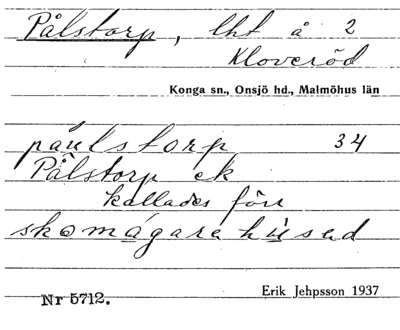 Pålstorp, lht å 2
Kloveröd
Konga sn., Onsjö hd., Malmöhus län
påulstorp 34
Pålstorp ck
kallades förr
skomágarehùsed
Nr 5712. Erik Jehpsson 1937